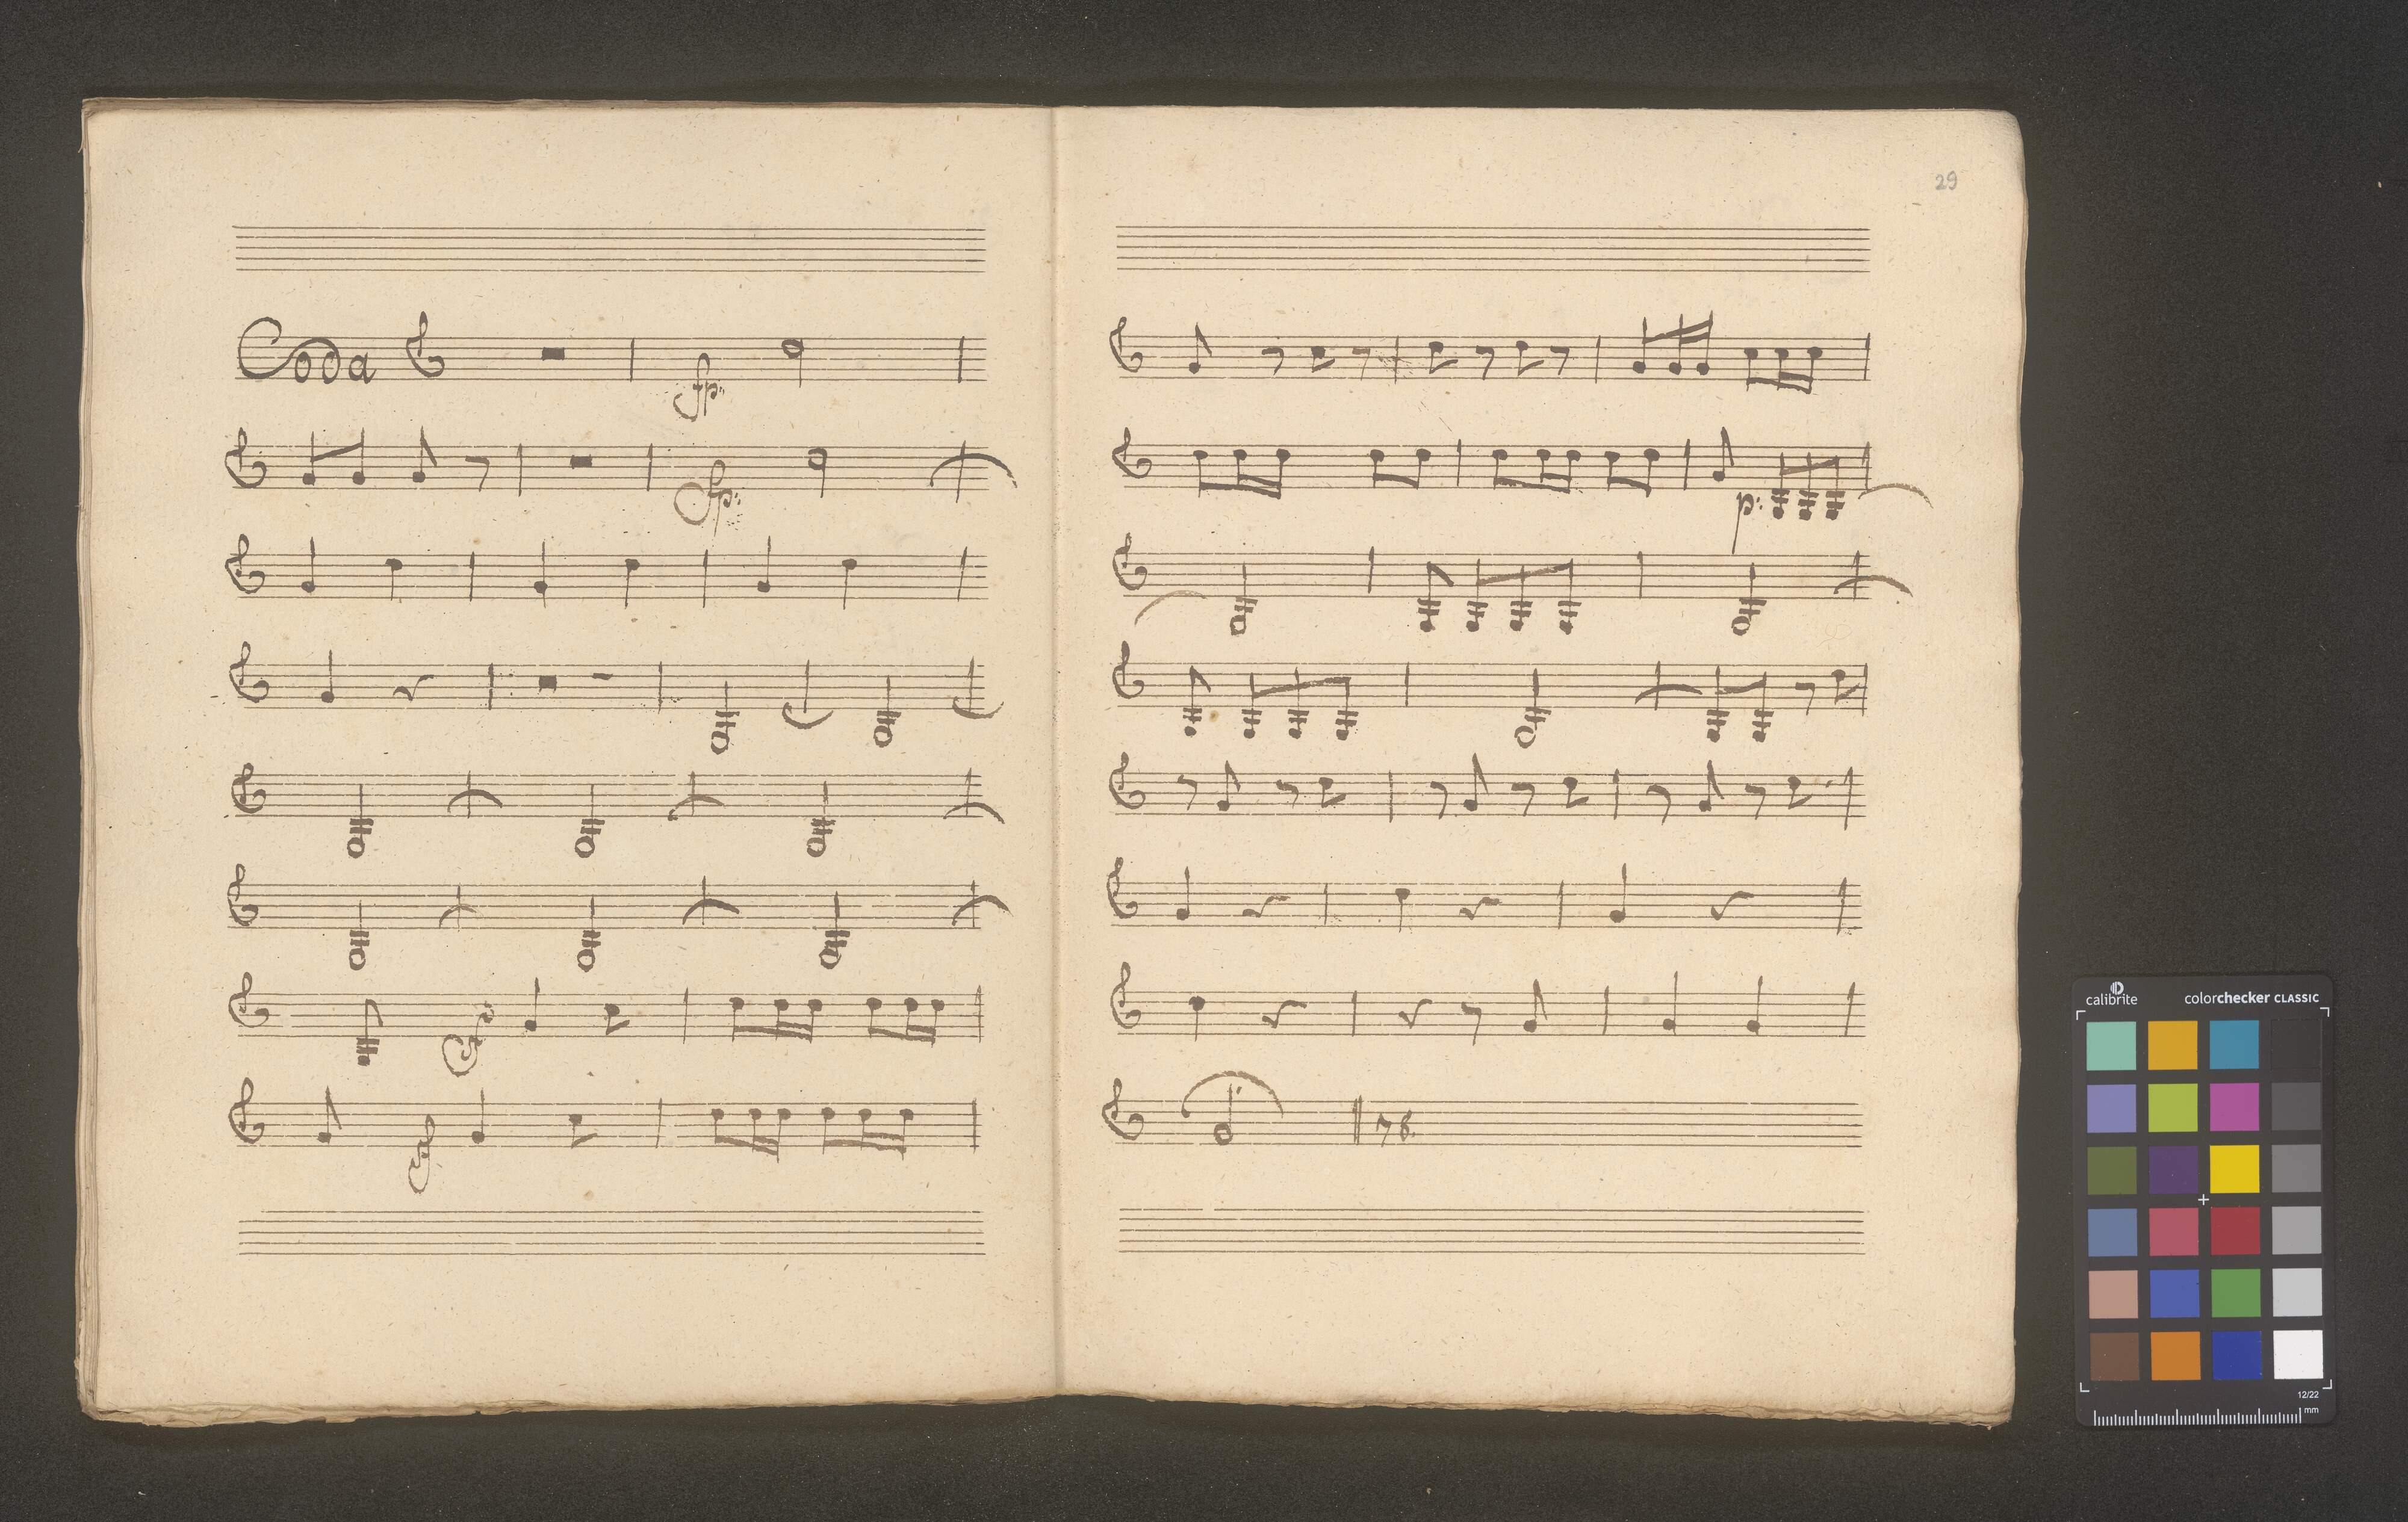 Coda
fp:
fp:
f
f
29
p:
78.
calibrite colorchecker CLASSIC
12/22
mm